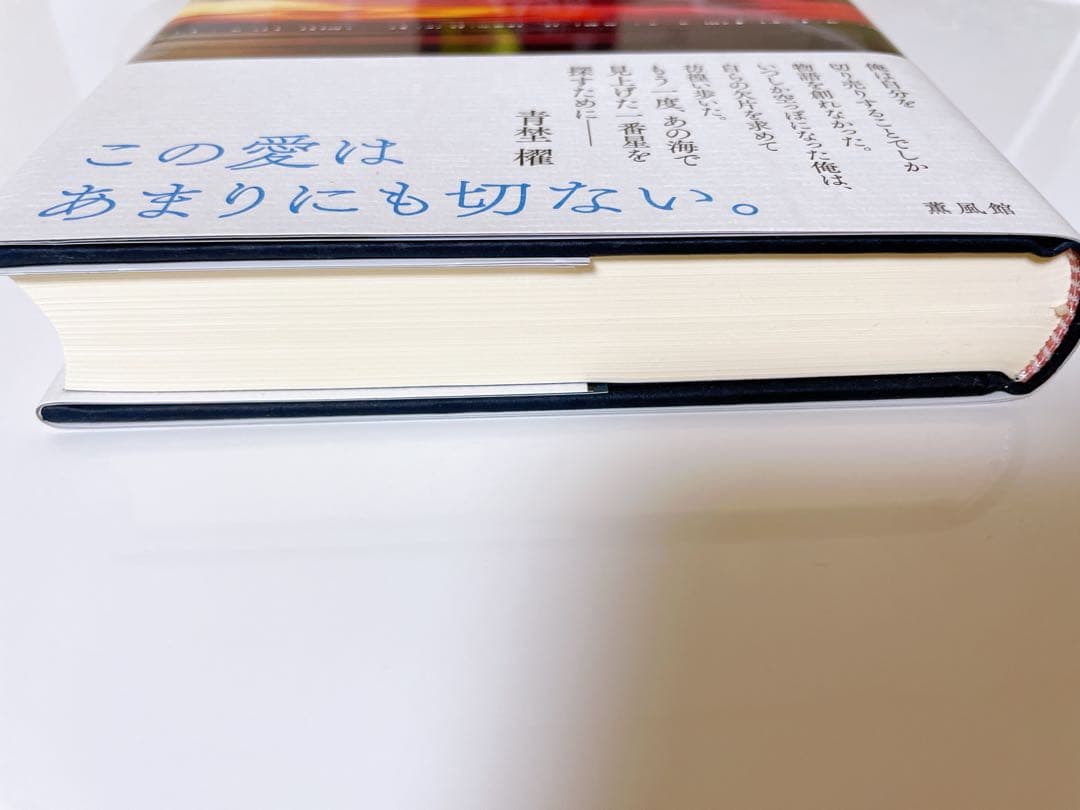 俺は自分を
切り売りすることでしか
物語を創れなかった。
いつしか空っぽになった俺は、
自らの欠片を求めて
彷徨い歩いた。
もう一度、あの海で
見上げた一番星を
探すために——
青埜 櫂
この愛は
あまりにも切ない。
薫風館